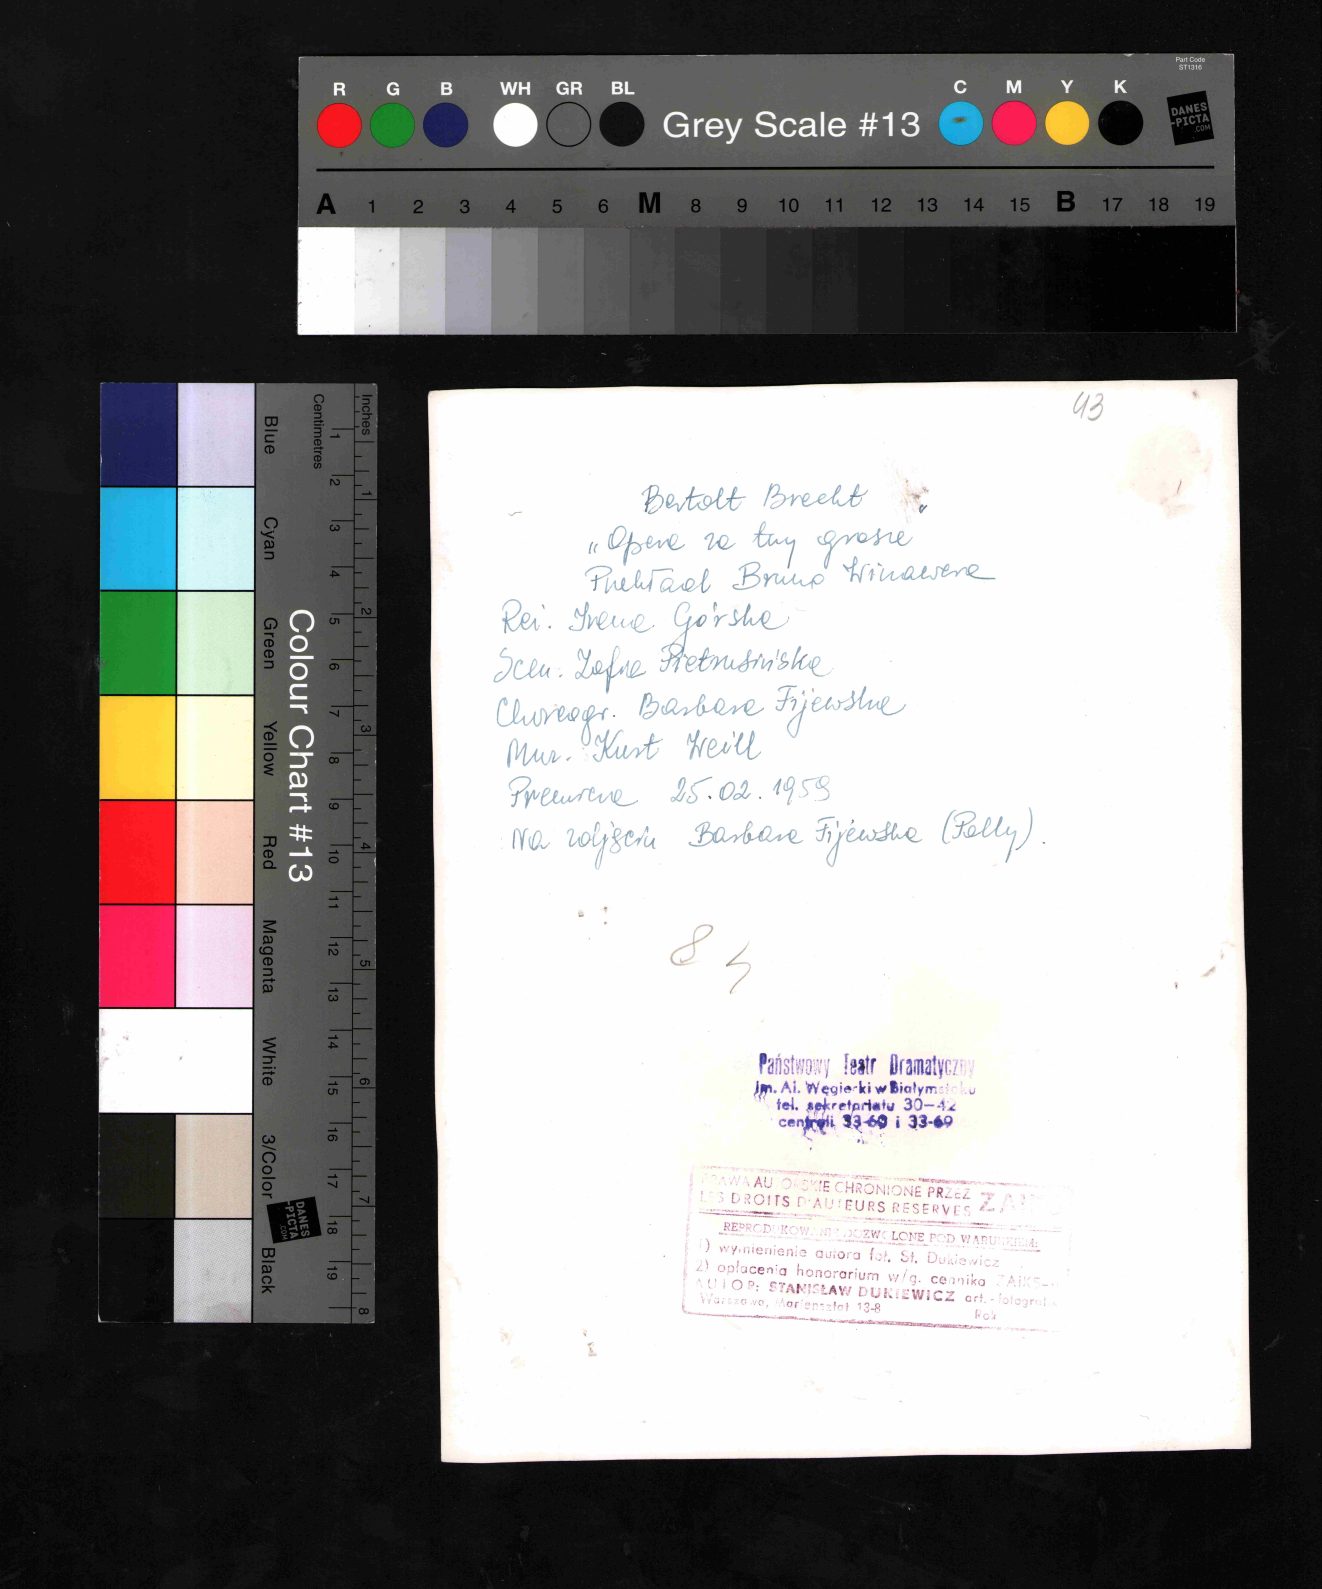 Part Code
ST1316
R G B WH GR BL Grey Scale #13 C M Y K
DANES
-PICTA
.COM
A 1 2 3 4 5 6 M 8 9 10 11 12 13 14 15 B 17 18 19
Colour Chart #13
Blue Cyan Green Yellow Red Magenta White 3/Color Black
Centimetres 1 2 3 4 5 6 7 8 9 10 11 12 13 14 15 16 17 18 19
Inches 1 2 3 4 5 6 7 8
DANES
-PICTA
.COM
43
Bertolt Brecht
„Opera za trzy grosze"
Przekład Bruno Winawera
Reż. Irena Górska
Scen. Zofia Pietrusińska
Choreogr. Barbara Fijewska
Muz. Kurt Weill
Premiera 25.02.1959
Na zdjęciu Barbara Fijewska (Polly).
8
Państwowy Teatr Dramatyczny
im. Al. Węgierki w Białymstoku
tel. sekretariatu 30-42
centrali 33-60 i 33-69
PRAWA AUTORSKIE CHRONIONE PRZEZ ZAIKS
LES DROITS D'AUTEURS RESERVES
REPRODUKOWANIE DOZWOLONE POD WARUNKIEM:
1) wymienienie autora fot. St. Dukiewicz
2) opłacenia honorarium w/g. cennika ZAIKS-
AUTOR: STANISŁAW DUKIEWICZ art.-fotograf
Warszawa, Mariensztat 13-8 Rok